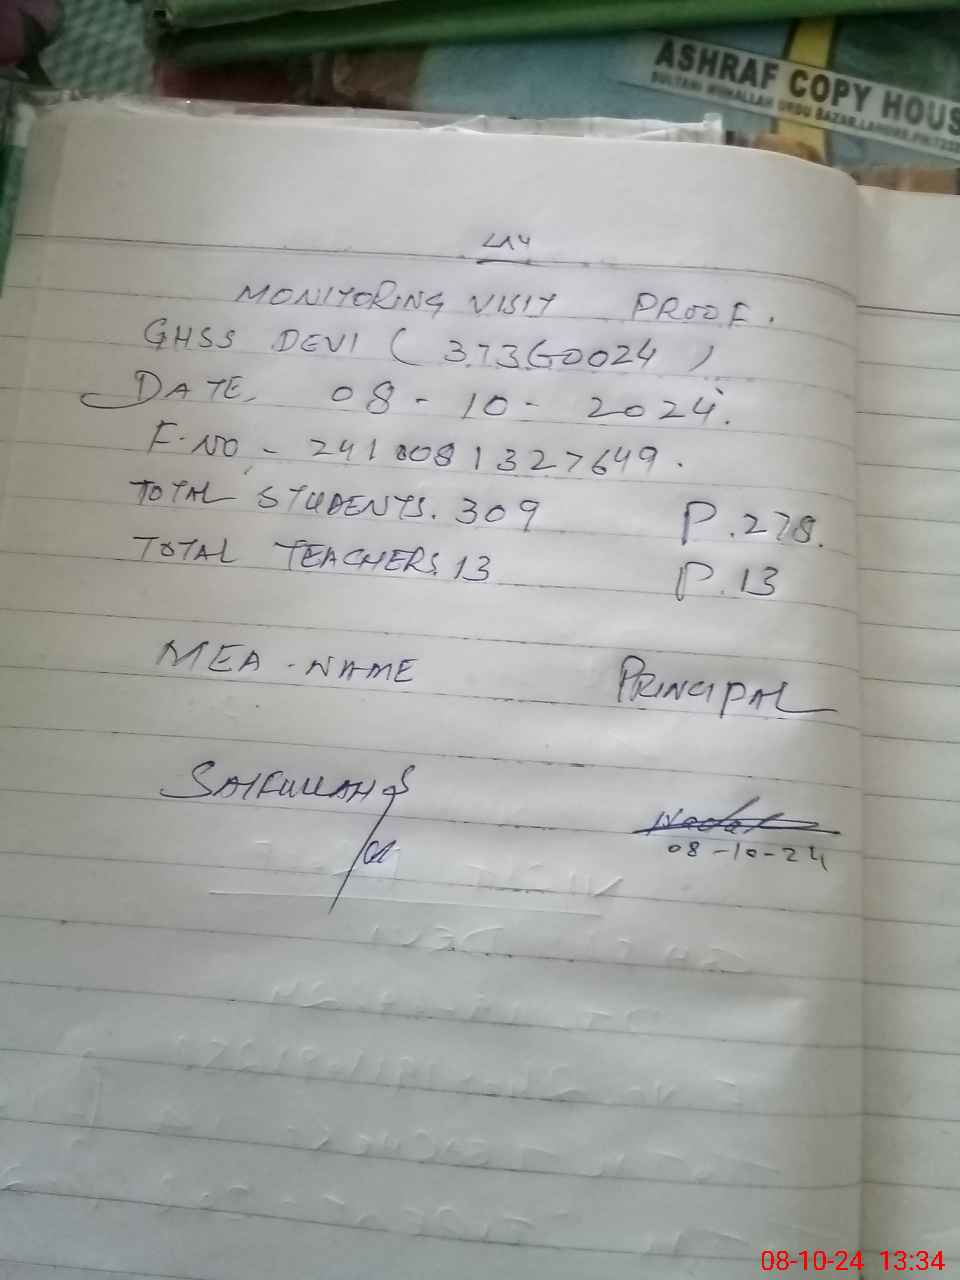 ASHRAF COPY HOUS
URDU BAZAR, LAHORE.
MONITORING VISIT PROOF.
GHSS DEVI ( 373G0024 )
DATE. 08-10-2024.
F.NO - 2410081327649.
TOTAL STUDENTS. 309 P.278.
TOTAL TEACHERS. 13 P.13
MEA-NAME PRINCIPAL
SAIFULLAH
08-10-24
08-10-24 13:34